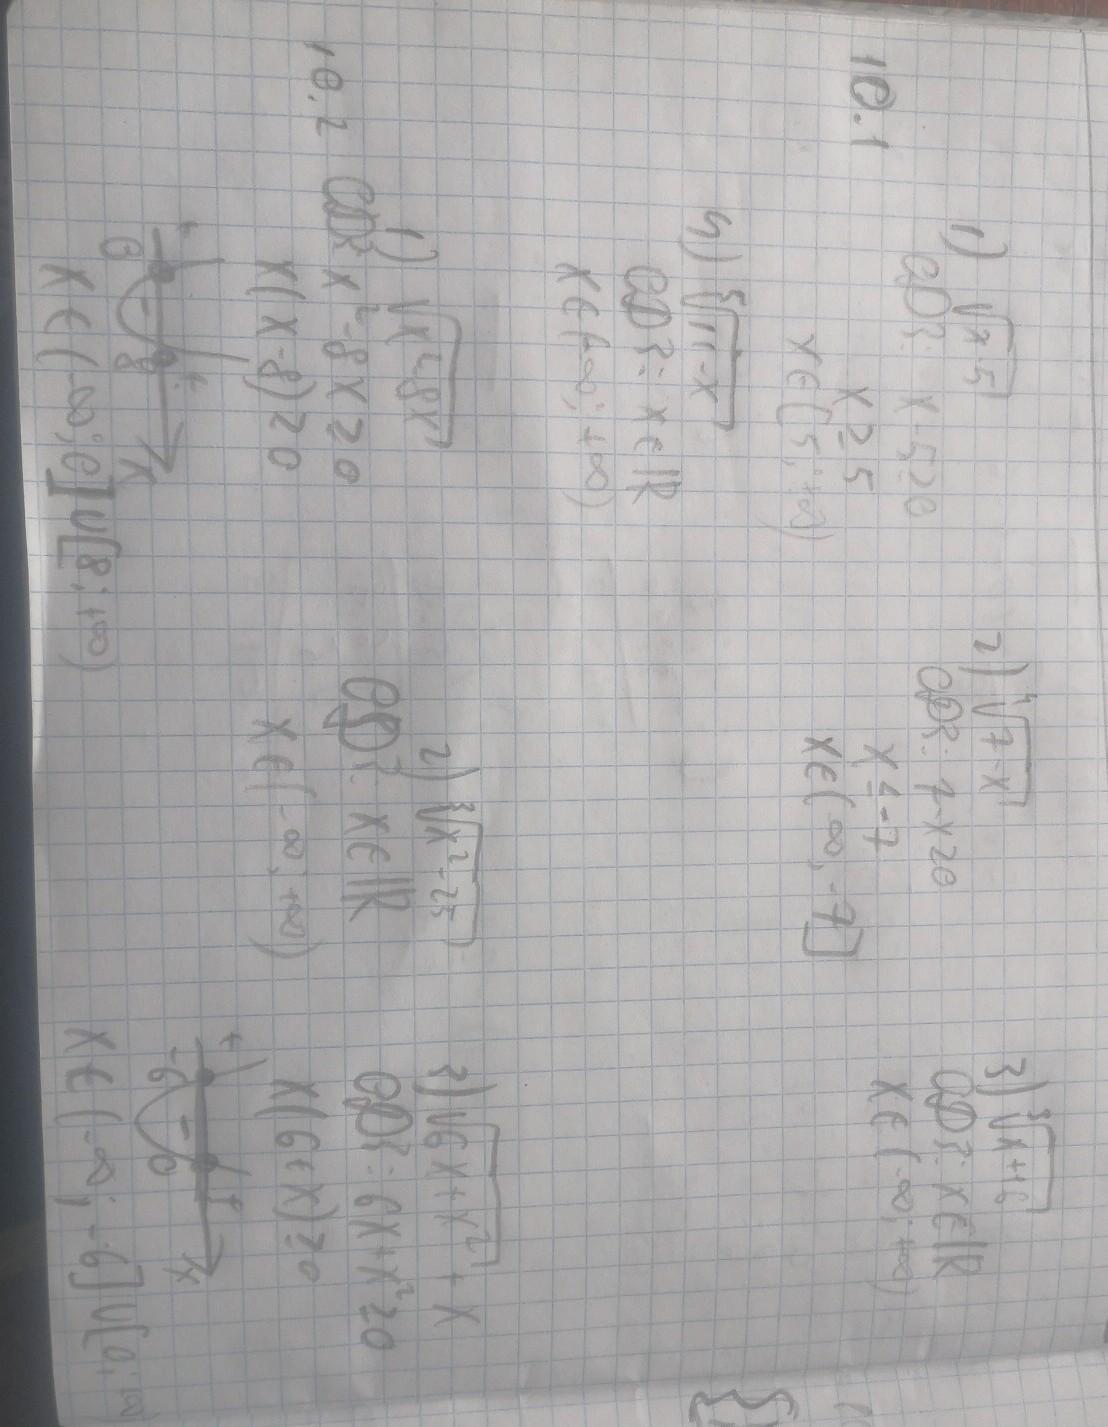 10.1
1) √x-5
ОДЗ: x-5≥0
x≥5
x∈(5;+∞)
2) ⁴√7-x
ОДЗ: 7-x≥0
x≤-7
x∈(-∞; -7]
3) ³√x+16
ОДЗ: x∈ℝ
x∈(-∞;+∞)
4) ⁵√11-x
ОДЗ: x∈ℝ
x∈(-∞;+∞)
10.2
1) √x²-8x
ОДЗ x²-8x≥0
x(x-8)≥0
+ - + x
0 8
x∈(-∞;0]∪[8;+∞)
2) ³√x²-25
ОДЗ: x∈ℝ
x∈(-∞;+∞)
3) √6x+x² + x
ОДЗ: 6x+x²≥0
x(6+x)≥0
+ - + x
-6 0
x∈(-∞;-6]∪[0;+∞)